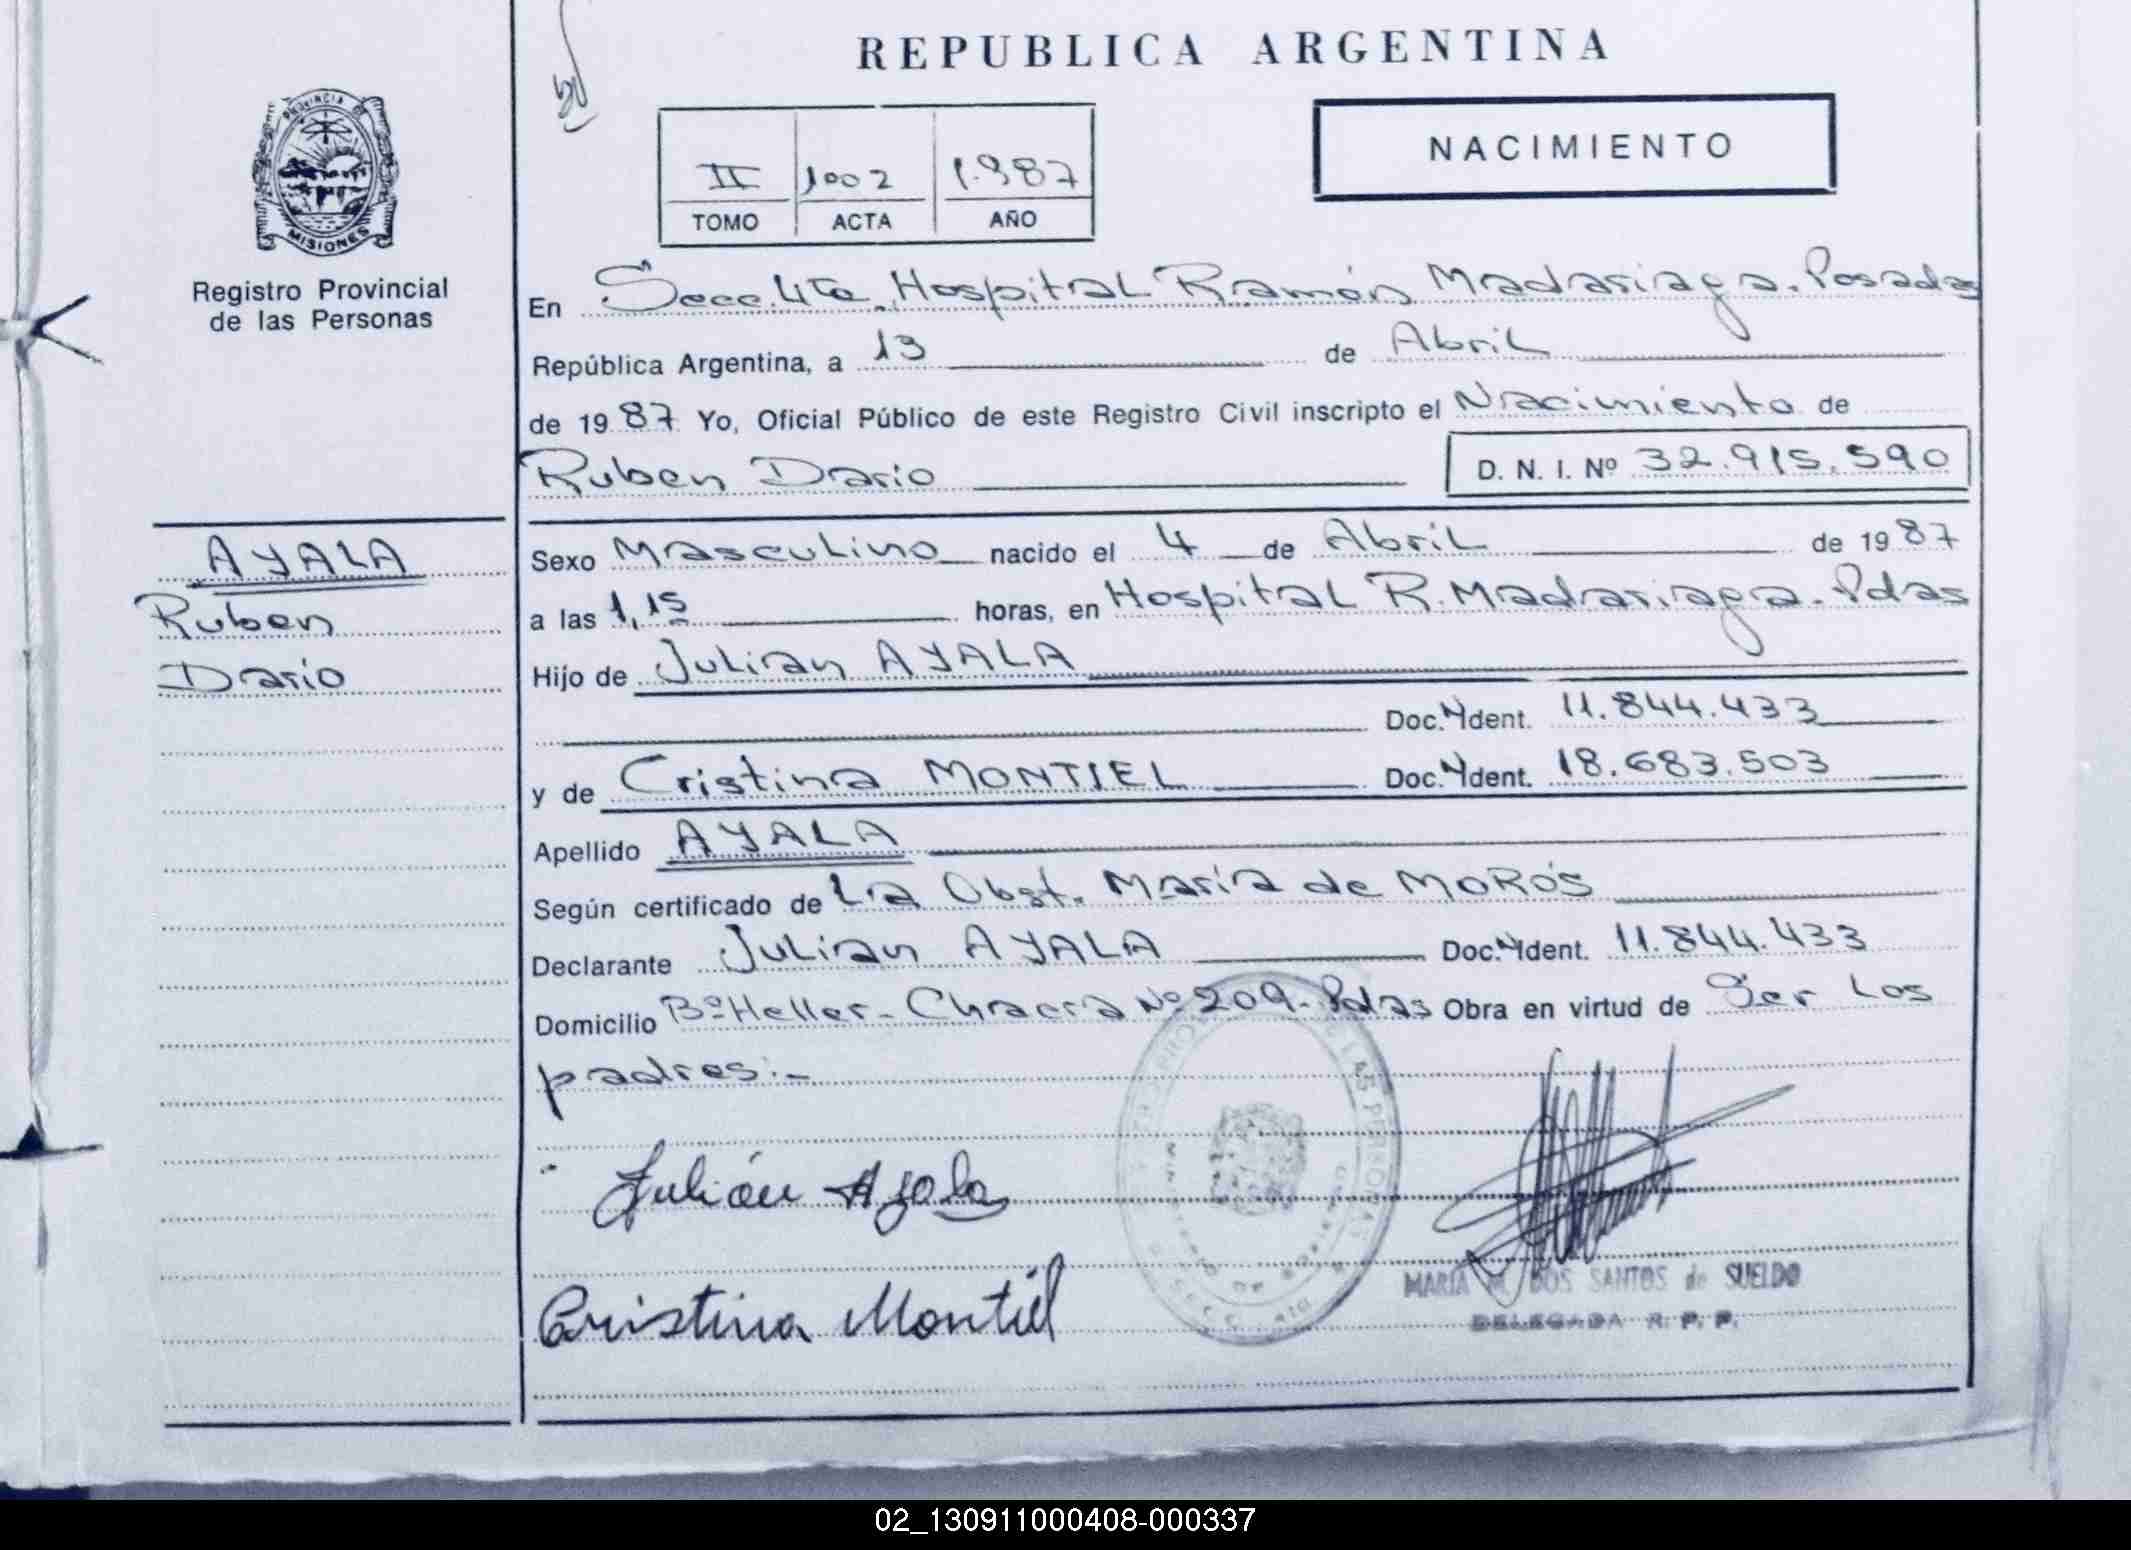 REPUBLICA ARGENTINA
PROVINCIA DE
MISIONES
Registro Provincial
de las Personas
II 1002 1.987
TOMO ACTA AÑO
NACIMIENTO
En Secc. 4ta. Hospital Ramón Madariaga. Posadas
República Argentina, a 13 de Abril
de 1987 Yo, Oficial Público de este Registro Civil inscripto el Nacimiento de
Ruben Dario D. N. I. Nº 32.915.590
AYALA
Ruben
Dario
Sexo Masculino nacido el 4 de Abril de 1987
a las 1,15 horas, en Hospital R. Madariaga. Pdas
Hijo de Julian AYALA
Doc. Ident. 11.844.433
y de Cristina MONTIEL Doc. Ident. 18.683.503
Apellido AYALA
Según certificado de La Obst. María de MOROS
Declarante Julian AYALA Doc. Ident. 11.844.433
Domicilio Bº Heller - Chacra Nº 209 - Pdas Obra en virtud de Ser Los
padres.-
Julián Ayala
Cristina Montiel
MARIA M. DOS SANTOS de SUELDO
DELEGADA R. P. P.
02_130911000408-000337